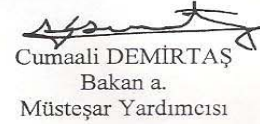 Cumaali DEMİRTAŞ
Bakan a.
Müsteşar Yardımcısı